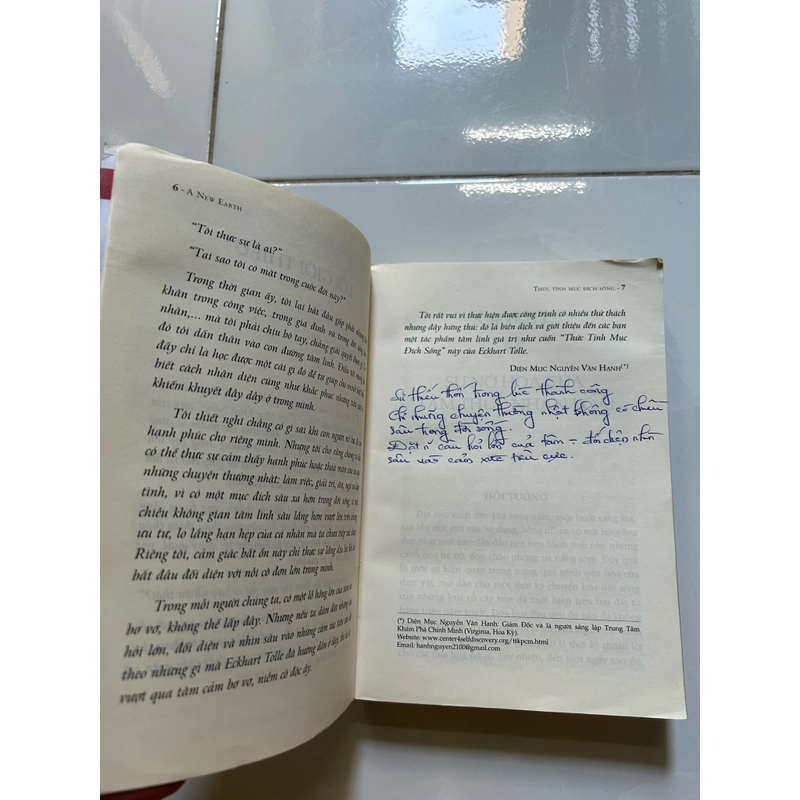 6 - A NEW EARTH
"Tôi thực sự là ai?"
"Tại sao tôi có mặt trong cuộc đời này?"
Trong thời gian ấy, tôi lại bắt đầu gặp phải những
khăn trong công việc, trong gia đình và trong đời sống
nhân,... mà tôi phải chịu bó tay, chẳng giải quyết được gì.
đó tôi dấn thân vào con đường tâm linh. Điều tôi mong
đấy chỉ là học được một cái gì đó để tự giúp cho mình
biết cách nhân diện cũng như khắc phục những
khiếm khuyết đầy dẫy ở trong mình.
Tôi thiết nghĩ chẳng có gì sai khi con người nỗ lực đi tìm
hạnh phúc cho riêng mình. Nhưng tôi cho rằng chúng ta không
có thể thực sự cảm thấy hạnh phúc hoặc thỏa mãn
những chuyện thường nhật: làm việc, giải trí, ăn, ngủ
tình, vì có một mục đích sâu xa hơn trong đời sống,
chiều không gian tâm linh sâu lắng hơn vượt lên trên những
ưu tư, lo lắng hạn hẹp của cá nhân mà ta chưa tiếp xúc
Riêng tôi, cảm giác bất ổn này chỉ thực sự lắng dịu lại khi tôi
bắt đầu đối diện với nỗi cô đơn lớn trong mình.
Trong mỗi người chúng ta, có một lỗ hổng lớn của tâm
bơ vơ, không thể lấp đầy. Nhưng nếu ta dám đặt những câu
hỏi lớn, đối diện và nhìn sâu vào những cảm xúc tiêu cực
theo những gì mà Eckhart Tolle đã hướng dẫn ở đây, thì ta
vượt qua tâm cảm bơ vơ, niềm cô độc ấy.
THỨC TỈNH MỤC ĐÍCH SỐNG - 7
Tôi rất vui vì thực hiện được công trình có nhiều thử thách
nhưng đầy hứng thú: đó là biên dịch và giới thiệu đến các bạn
một tác phẩm tâm linh giá trị như cuốn "Thức Tỉnh Mục
Đích Sống" này của Eckhart Tolle.
DIỆN MỤC NGUYỄN VĂN HẠNH(*)
Sự thiếu thốn trong lúc thành công
Chỉ những chuyện thường nhật không có chiều
sâu trong đời sống.
Đặt câu hỏi lớn của tâm - đối diện nhìn
sâu vào cảm xúc tiêu cực.
HỒI TƯỞNG
(*) Diện Mục Nguyễn Văn Hạnh: Giám Đốc và là người sáng lập Trung Tâm
Khám Phá Chính Mình (Virginia, Hoa Kỳ).
Website: www.center4selfdiscovery.org/ttkpcm.html
Email: hanhnguyen2100@gmail.com